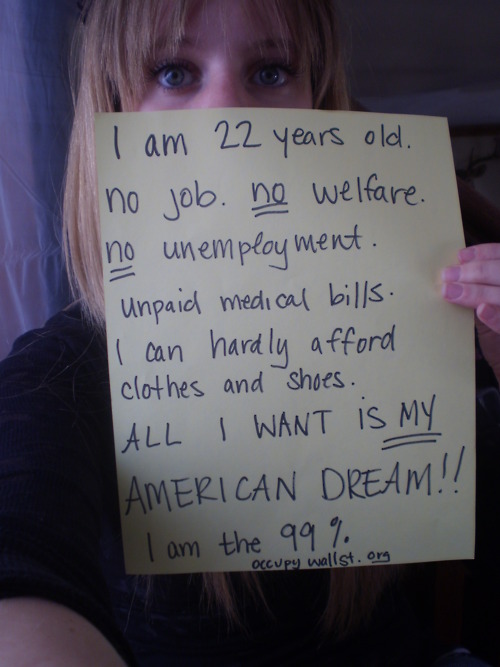 I am 22 years old.
no job. no welfare.
no unemployment.
unpaid medical bills.
I can hardly afford
clothes and shoes.
ALL I WANT IS MY
AMERICAN DREAM!!
I am the 99%.
occupywallst.org